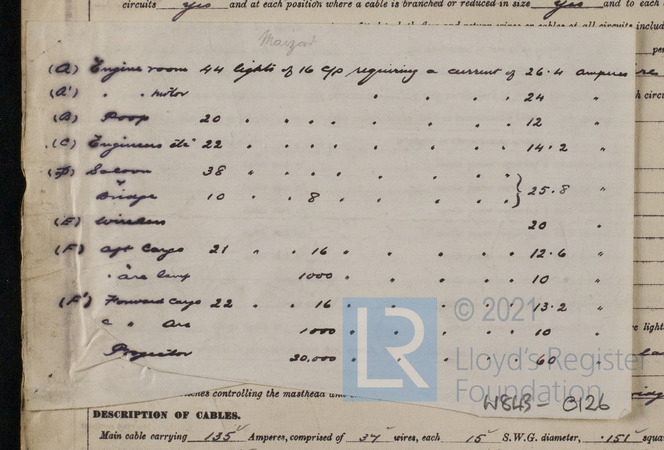 circuits yes and at each position where a cable is branched or reduced in size yes and to each
(A) Engine room 44 lights of 16 c/p requiring a current of 26.4 amperes
(A') " " motor " " " " 24 "
(B) Poop 20 " " " " " " 12 "
(C) Engineers etc 22 " " " " " " 14.2 "
(D) Saloon 38 " " " " " "
Bridge 10 " " 8 " " " " } 25.8 "
(E) Wireless 20 "
(F) aft Cargo 21 " " 16 " " " " 12.6 "
" arc lamp 1000 " " " " 10 "
(F') Forward cargo 22 " " 16 " " " " 13.2 "
" " Arc 1000 " " " " 10 "
Projector 30,000 " " " " 60 "
© 2021
LR
Lloyd's Register
Foundation
controlling the masthead
W843 - 0126
DESCRIPTION OF CABLES.
Main cable carrying 135 Amperes, comprised of 37 wires, each 15 S.W.G. diameter, .151 squa